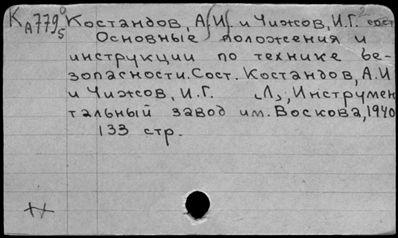 К А779⁰₅ Костандов, А.И. и Чижов, И.Г. сост.
Основные положения и
инструкции по технике бе-
зопасности. Сост. Костандов, А.И
и Чижов, И.Г. Л., Инструмен
тальный завод им. Воскова, 1940
133 стр.